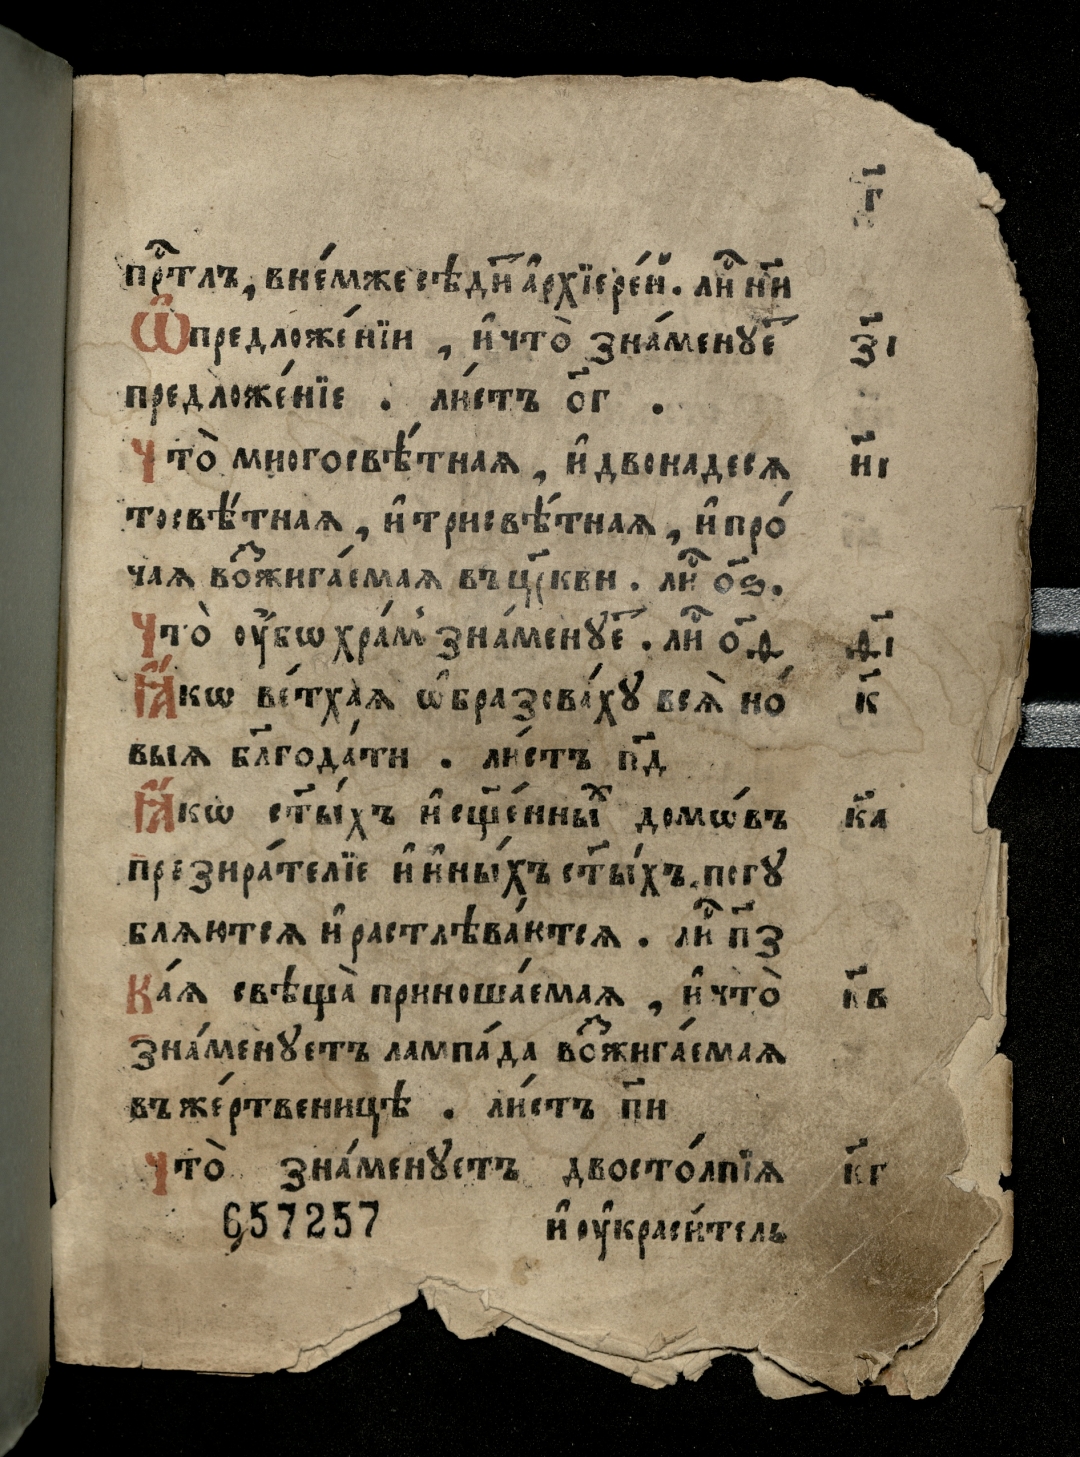 г҃
прⷭ҇тлъ, внє́мжє сѣди́ⷮ а҆рхїєрє́й. лиⷭ҇ н҃и
Ѡ҆ прєдложє́нїи , и҆ что̀ зна́мєнꙋєⷮ з҃і
прєдложє́нїє . ли́стъ о҃г .
Что̀ многосвѣ́тнаѧ , и҆ двонадєсѧ и҃і
тосвѣ́тнаѧ , и҆ трисвѣ́тнаѧ , и҆ про́
чаѧ воⷥжига́ємаѧ въ цр҃кви . лиⷭ҇ о҃ѕ.
Что̀ ᲂу҆́бѡ хра́мъ зна́мєнꙋєⷮ . лиⷭ҇ о҃ѳ ѳ҃і
Ꙗ҆́кѡ вє́тхаѧ ѡ҆бразова́хꙋ всѧ̀ но́ к҃
выѧ бл҃года́ти . ли́стъ п҃д
Ꙗ҆́кѡ ст҃ы́хъ и҆ сщ҃є́нныⷯ домѡ́въ к҃а
прєзира́тєлїє и҆ и҆ны́хъ ст҃ы́хъ, погꙋ
блѧютсѧ и҆ растлѣва́ютсѧ . лиⷭ҇ п҃з
Ка́ѧ свѣща̀ приноша́ємаѧ , и҆ что̀ к҃в
зна́мєнꙋєтъ лампа́да воⷥжига́ємаѧ
въ жє́ртвєницѣ . ли́стъ п҃и
Что̀ зна́мєнꙋєтъ двосто́лпїѧ к҃г
657257 и҆ ᲂу҆краси́тєль